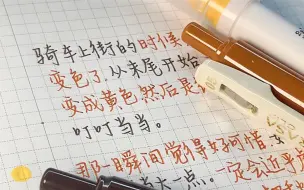 骑车上街的时候
变色了,从末尾开始
变成黄色然后是
叮叮当当。
那一瞬间觉得好可惜
大一点.一定会近